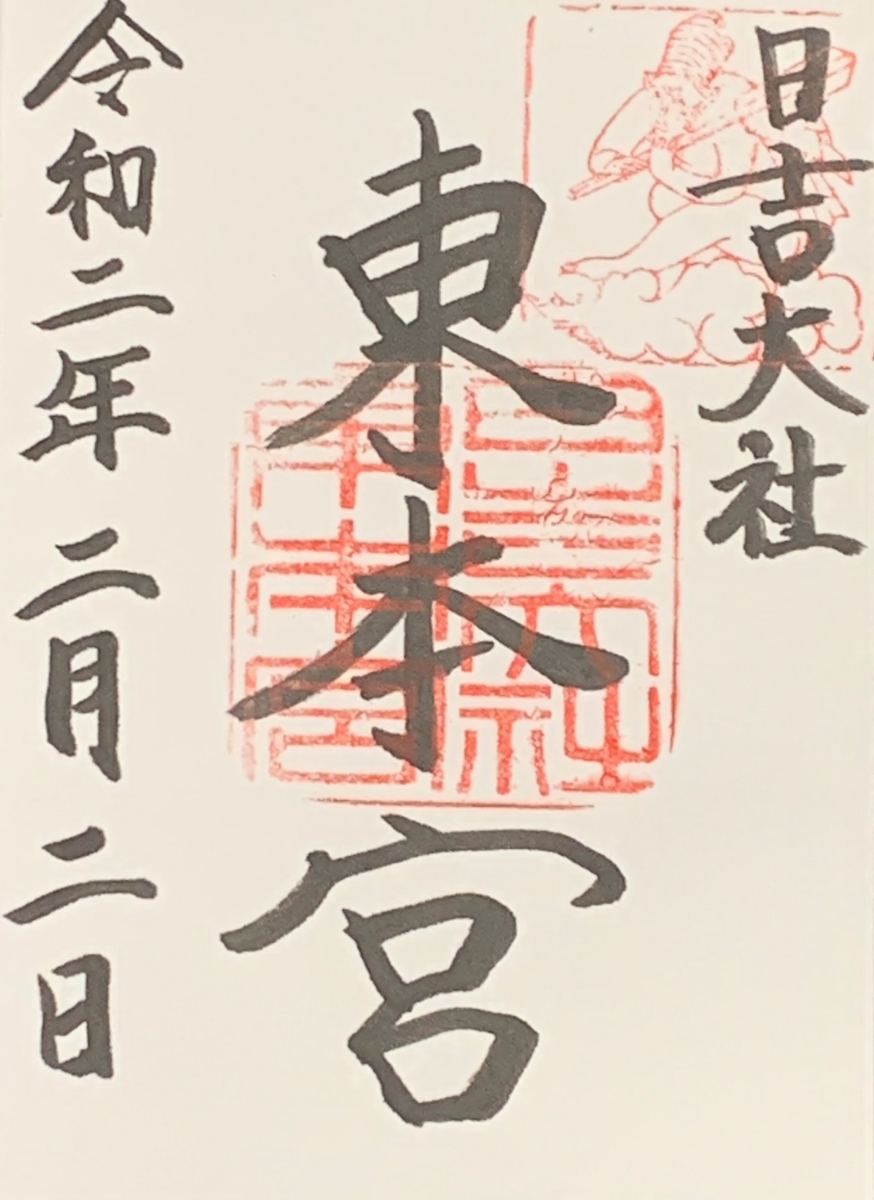 日吉大社
東本宮
令和二年二月二日